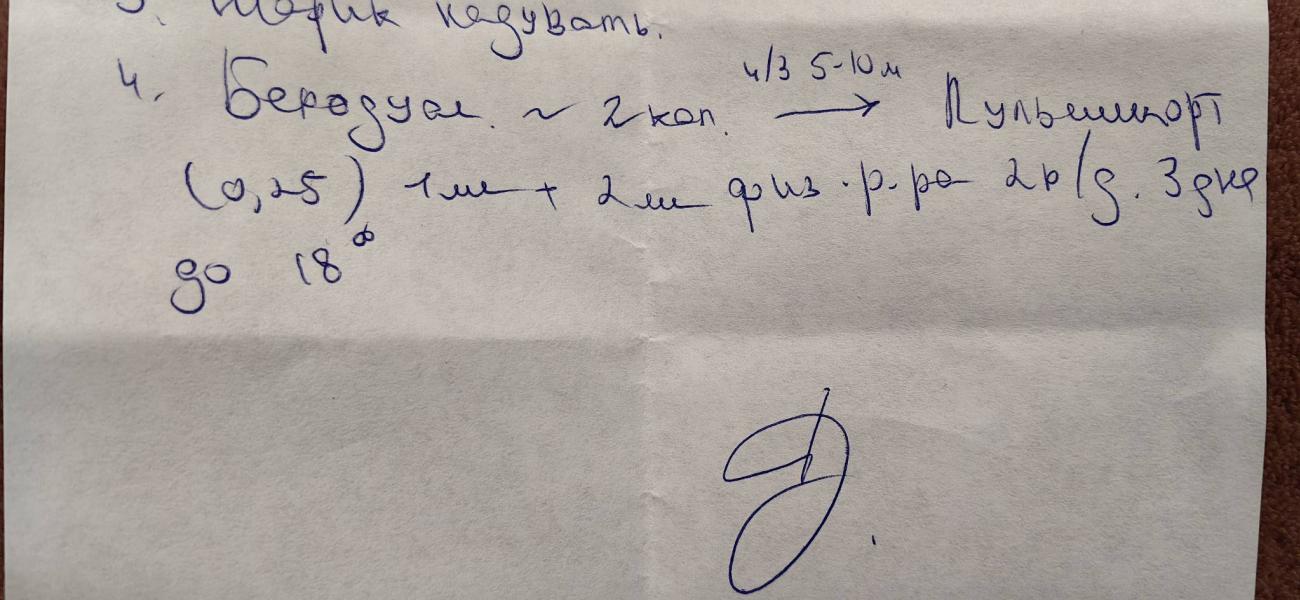 3. Шарик надувать.
4. Беродуал ~ 2 кап. ч/з 5-10 м → Пульмикорт
(0,25) 1 мл + 2 мл физ.р-ра 2 р/д. 3 дня
до 18⁰⁰